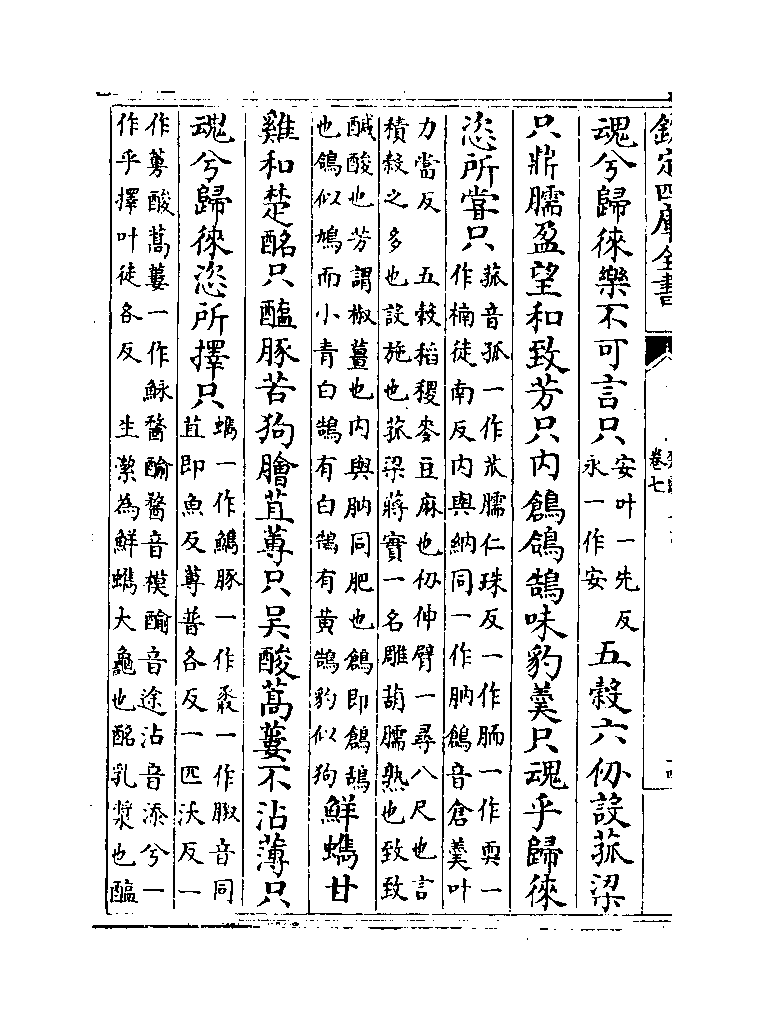 欽定四庫全書
卷七
魂兮歸徠樂不可言只
安叶一先反
永一作安
五穀六仞設菰梁
只鼎臑盈望和致芳只内鶬鴿鵠味豹羮只魂乎歸徠
恣所甞只
菰音孤一作苽臑仁珠反一作胹一作耎一
作楠徒南反内與納同一作肭鶬音倉羮叶
力當反 五穀稻稷麥豆麻也仞伸臂一尋八尺也言
積穀之多也設施也菰梁蔣實一名雕葫臑熟也致致
醎酸也芳謂椒薑也内與肭同肥也鶬即鶬鴰
也鴿似鳩而小青白鵠有白鵠有黄鵠豹似狗
鮮蠵甘
雞和楚酪只醢豚苦狗膾苴蓴只吳酸蒿蔞不沾薄只
魂兮歸徠恣所擇只
蠵一作豚一作一作音同
苴即魚反蓴普各反一匹沃反一
作酸蒿蔞一作音模音途沾音添兮一
作乎擇叶徒各反 生潔為鮮蠵大龜也酪乳漿也醢